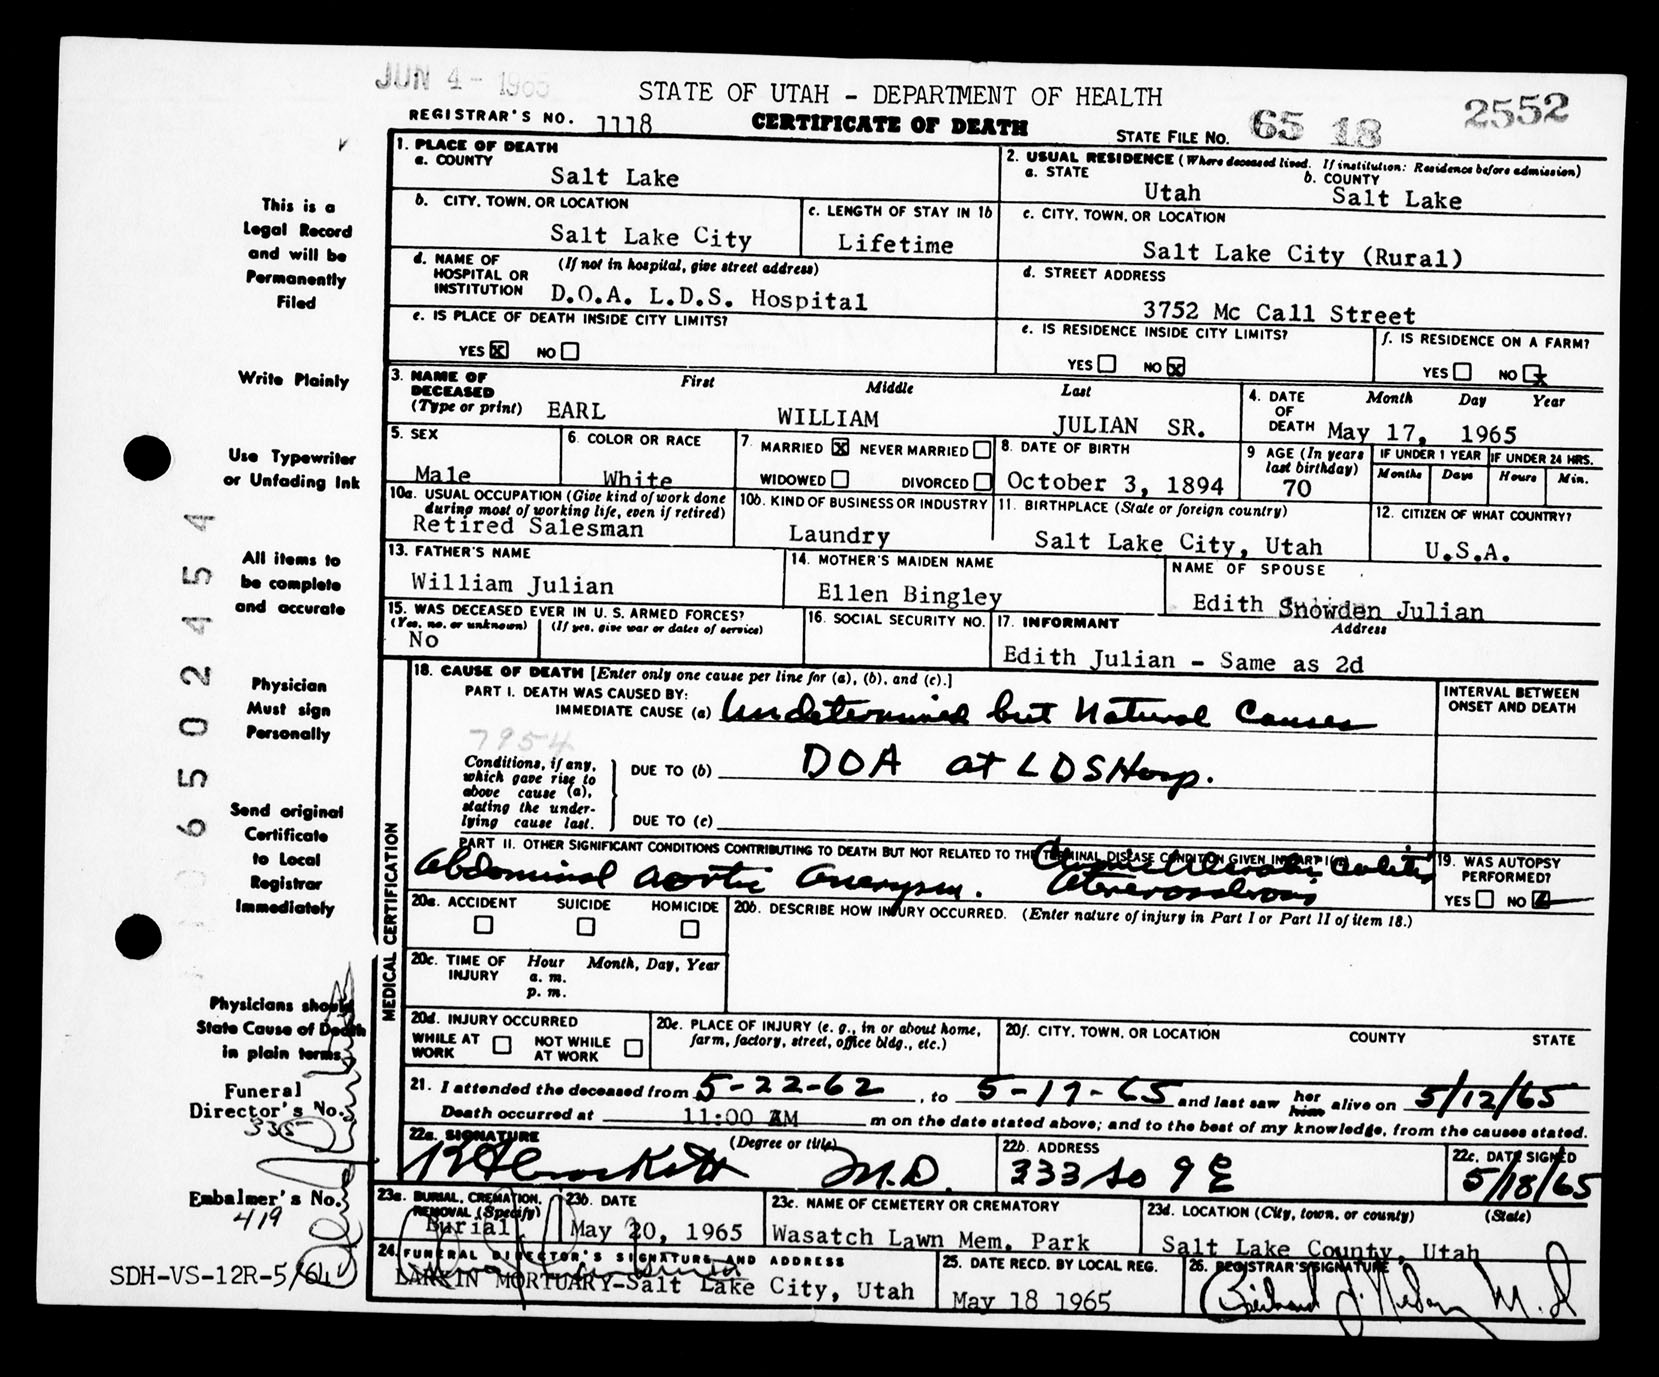 JUN 4 - 1965
STATE OF UTAH - DEPARTMENT OF HEALTH
REGISTRAR'S NO. 1118
CERTIFICATE OF DEATH
STATE FILE NO. 65 18 2552
This is a
Legal Record
and will be
Permanently
Filed
Write Plainly
Use Typewriter
or Unfading Ink
All items to
be complete
and accurate
Physician
Must sign
Personally
Send original
Certificate
to Local
Registrar
Immediately
Physicians should
State Cause of Death
in plain terms
Funeral
Director's No.
335
Embalmer's No.
419
SDH-VS-12R-5/64
0 6 5 0 2 4 5 4
1. PLACE OF DEATH
a. COUNTY
Salt Lake
2. USUAL RESIDENCE (Where deceased lived. If institution: Residence before admission)
a. STATE
Utah
b. COUNTY
Salt Lake
b. CITY, TOWN, OR LOCATION
Salt Lake City
c. LENGTH OF STAY IN 1b
Lifetime
c. CITY, TOWN, OR LOCATION
Salt Lake City (Rural)
d. NAME OF HOSPITAL OR INSTITUTION
(If not in hospital, give street address)
D.O.A. L.D.S. Hospital
d. STREET ADDRESS
3752 Mc Call Street
e. IS PLACE OF DEATH INSIDE CITY LIMITS?
YES X NO
e. IS RESIDENCE INSIDE CITY LIMITS?
YES NO X
f. IS RESIDENCE ON A FARM?
YES NO X
3. NAME OF DECEASED (Type or print)
First Middle Last
EARL WILLIAM JULIAN SR.
4. DATE OF DEATH
Month Day Year
May 17, 1965
5. SEX
Male
6. COLOR OR RACE
White
7. MARRIED X NEVER MARRIED
WIDOWED DIVORCED
8. DATE OF BIRTH
October 3, 1894
9 AGE (In years last birthday)
70
IF UNDER 1 YEAR
Months Days
IF UNDER 24 HRS.
Hours Min.
10a. USUAL OCCUPATION (Give kind of work done during most of working life, even if retired)
Retired Salesman
10b. KIND OF BUSINESS OR INDUSTRY
Laundry
11. BIRTHPLACE (State or foreign country)
Salt Lake City, Utah
12. CITIZEN OF WHAT COUNTRY?
U.S.A.
13. FATHER'S NAME
William Julian
14. MOTHER'S MAIDEN NAME
Ellen Bingley
NAME OF SPOUSE
Edith Snowden Julian
15. WAS DECEASED EVER IN U. S. ARMED FORCES?
(Yes, no, or unknown) (If yes, give war or dates of service)
No
16. SOCIAL SECURITY NO.
17. INFORMANT Address
Edith Julian - Same as 2d
MEDICAL CERTIFICATION
18. CAUSE OF DEATH [Enter only one cause per line for (a), (b), and (c).]
PART I. DEATH WAS CAUSED BY:
IMMEDIATE CAUSE (a) Undetermined but Natural Causes
7954
Conditions, if any, which gave rise to above cause (a), stating the underlying cause last.
DUE TO (b) DOA at LDS Hosp.
DUE TO (c)
INTERVAL BETWEEN ONSET AND DEATH
PART II. OTHER SIGNIFICANT CONDITIONS CONTRIBUTING TO DEATH BUT NOT RELATED TO THE TERMINAL DISEASE CONDITION GIVEN IN PART I (a)
Abdominal aortic aneurysm. Chronic Ulcerative Colitis
Aterosclerosis
19. WAS AUTOPSY PERFORMED?
YES NO
20a. ACCIDENT SUICIDE HOMICIDE
20b. DESCRIBE HOW INJURY OCCURRED. (Enter nature of injury in Part I or Part II of item 18.)
20c. TIME OF INJURY
Hour Month, Day, Year
a. m.
p. m.
20d. INJURY OCCURRED
WHILE AT WORK NOT WHILE AT WORK
20e. PLACE OF INJURY (e. g., in or about home, farm, factory, street, office bldg., etc.)
20f. CITY, TOWN, OR LOCATION COUNTY STATE
21. I attended the deceased from 5-22-62, to 5-17-65 and last saw her him alive on 5/12/65
Death occurred at 11:00 AM m on the date stated above; and to the best of my knowledge, from the causes stated.
22a. SIGNATURE (Degree or title)
Crockett M.D.
22b. ADDRESS
333 So 9 E
22c. DATE SIGNED
5/18/65
23a. BURIAL, CREMATION, REMOVAL (Specify)
Burial
23b. DATE
May 20, 1965
23c. NAME OF CEMETERY OR CREMATORY
Wasatch Lawn Mem. Park
23d. LOCATION (City, town, or county) (State)
Salt Lake County, Utah
24. FUNERAL DIRECTOR'S SIGNATURE AND ADDRESS
LARKIN MORTUARY-Salt Lake City, Utah
25. DATE RECD. BY LOCAL REG.
May 18 1965
26. REGISTRAR'S SIGNATURE